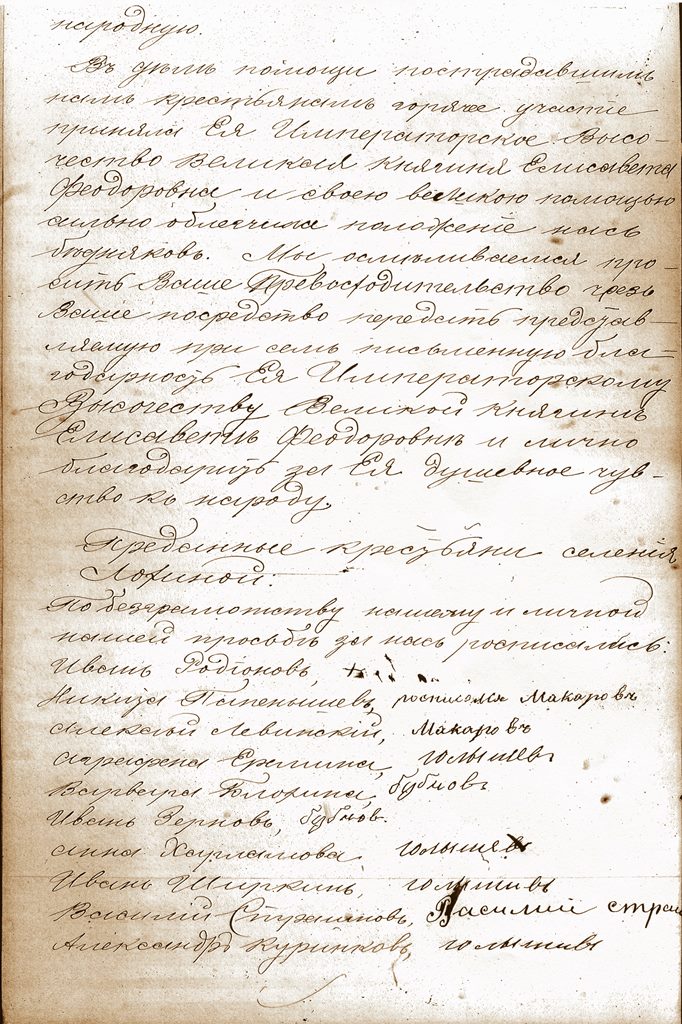 народную.
Въ дѣлѣ помощи пострадавшимъ
намъ крестьянамъ горячее участіе
приняла Ея Императорское Высо-
чество Великая Княгиня Елисавета
Феодоровна и своею великою помощью
сильно облегчила положеніе насъ
бѣдняковъ. Мы осмѣливаемся про-
сить Ваше Превосходительство чрезъ
Ваше посредство передать представ-
ляемую при семъ письменную бла-
годарность Ея Императорскому
Высочеству Великой Княгинѣ
Елисаветѣ Феодоровнѣ и лично
благодарить за Ея душевное чув-
ство къ народу.
Преданные крестьяни селенія
Лохиной:
По безграмотству нашему и личной
нашей просьбѣ за насъ росписались:
Иванъ Родіоновъ,
Никита Папенышевъ, росписался Макаровъ
Алексѣй Левинскій, Макаровъ
Аграфена Ерхина, голышевъ
Варвара Блохина, бубновъ
Иванъ Зерновъ, бубнов.
Анна Харламова голышевъ
Иванъ Ширкинъ, голышевъ
Василій Страшновъ, Василий страш
Александръ Куринковъ, голышевъ